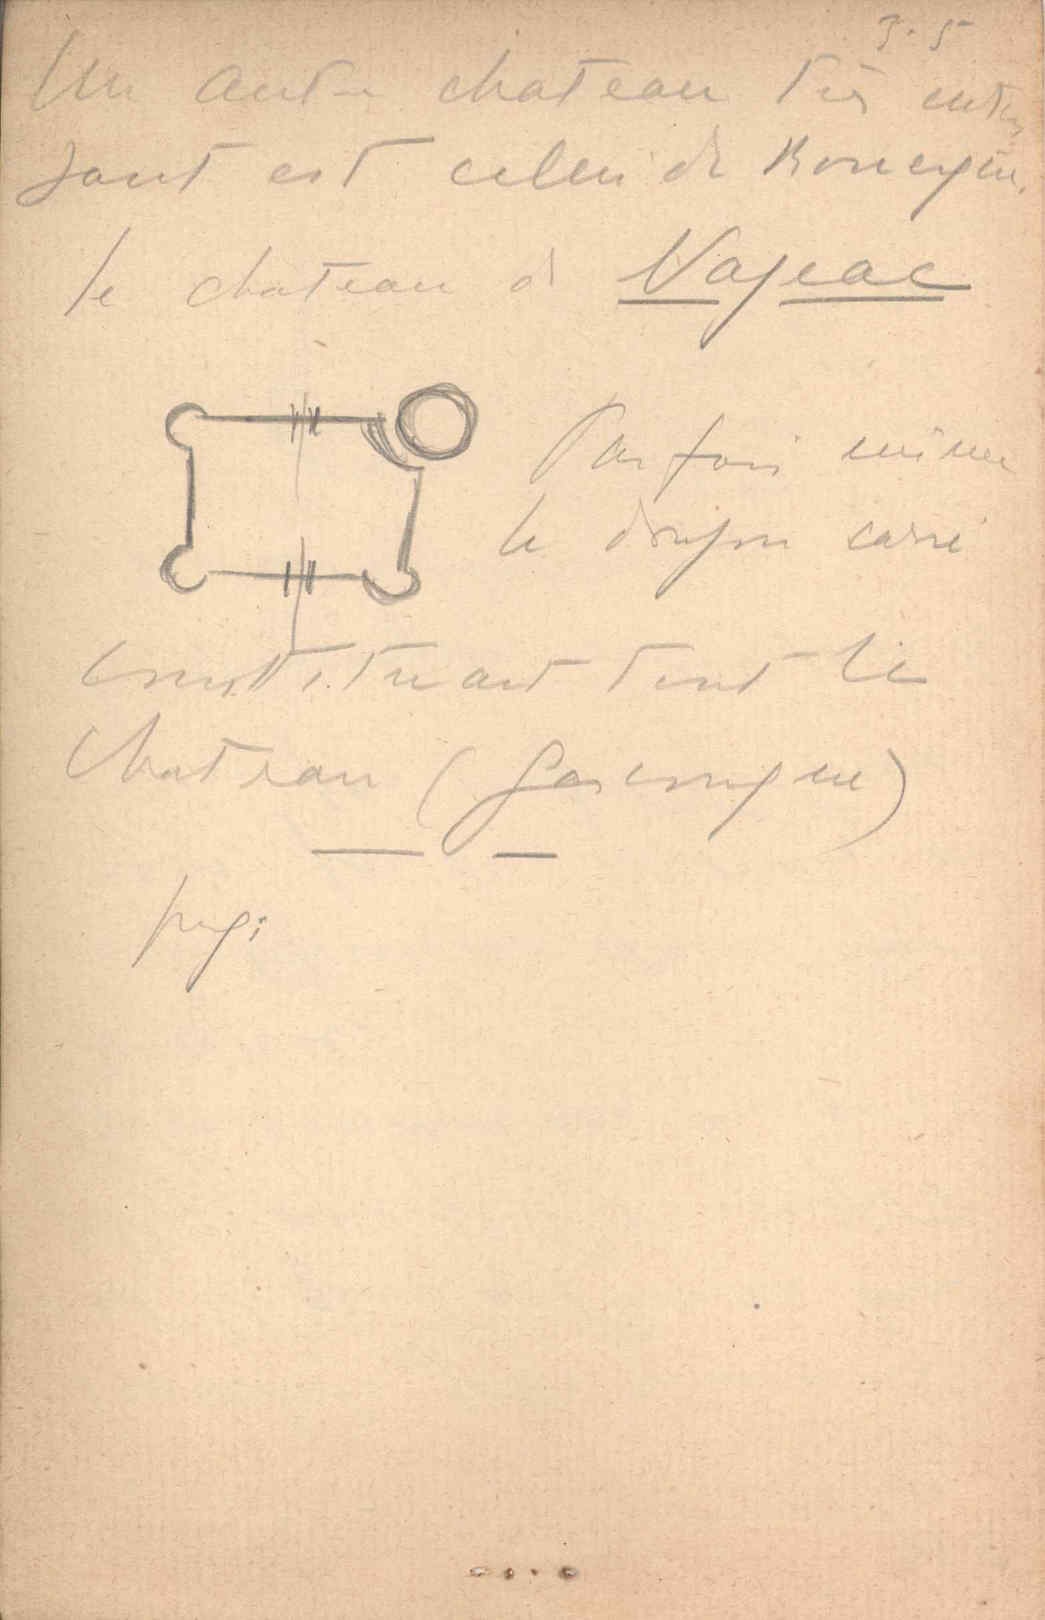 3.5
Un autre chateau très intéres
sant est celui de Rouergue.
le chateau de Najac
Parfois même
le donjon carré
constituant tout le
chateau (Gascogne)